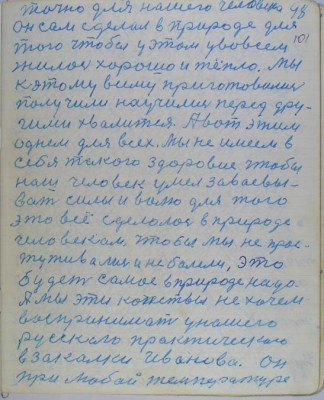 точно для нашего человека 98
Он сам сделал в природе для 101
того чтобы у этом увовсем
жилос хорошо и тёпло. Мы
к этому всиму приготовилис
получили научилис перед дру-
гими хвалится. А вот этим
однем для всех. Мы не имеем в
себя такого здоровие чтобы
наш человек умел заваевы-
ват силы и волю для того
это всё сделолос в природе
человекам, чтобы мы не прос-
тутивалис и не болели, это
будет самое в природе надо.
А мы эти качетвы не хочем
воспринимат у нашего
русскаго практическаго
в закалки Иванова. Он
при любой температуре